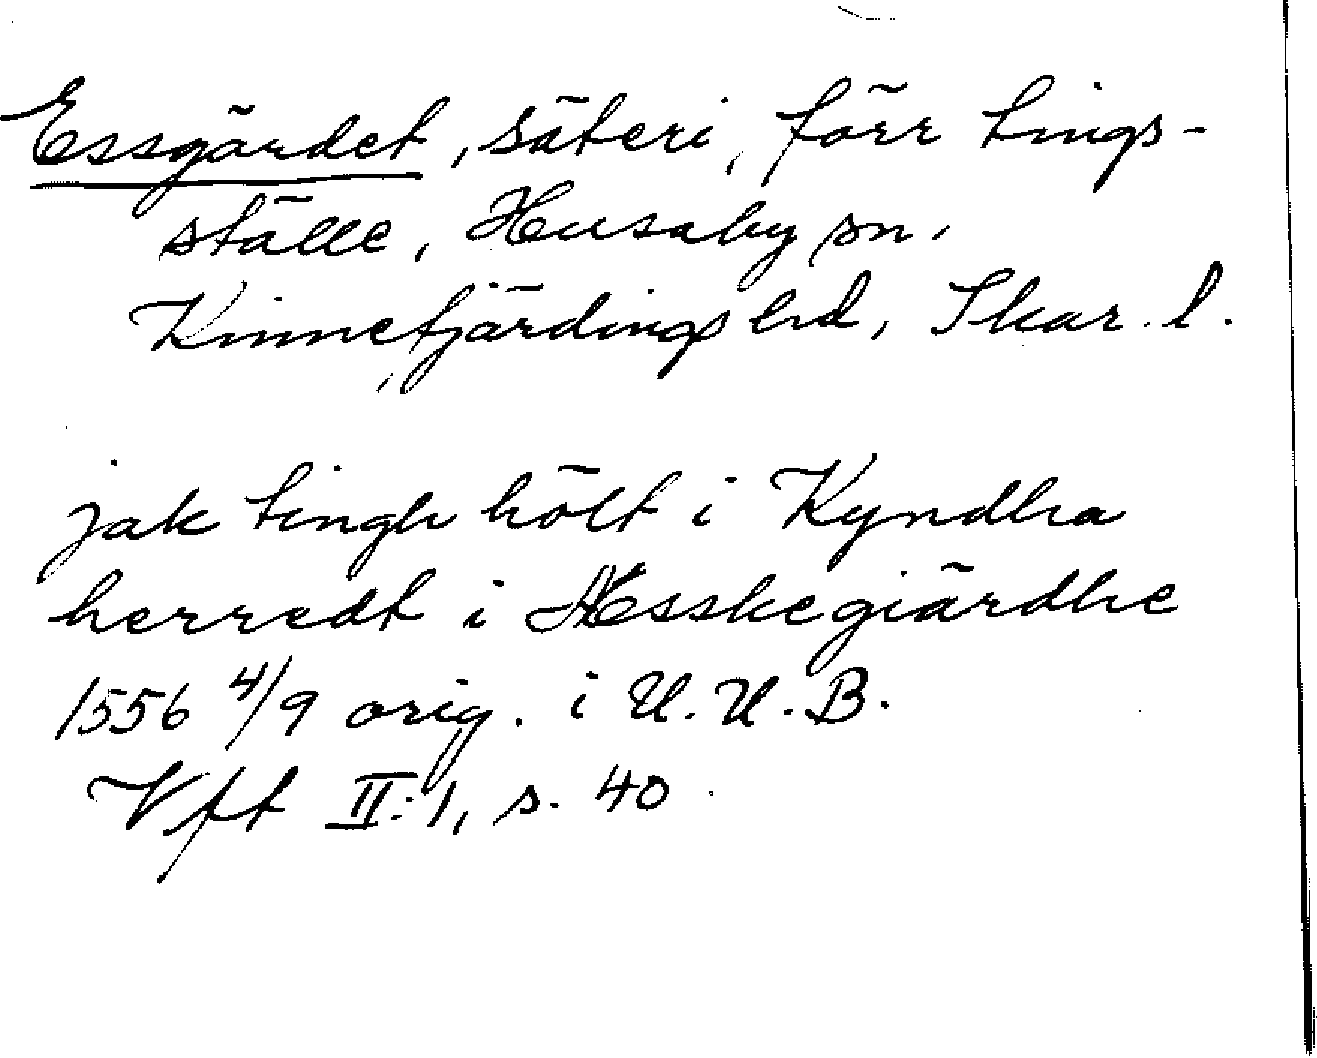 Essgärdet, säteri, förr tings-
ställe, Husaby sn,
Kinnefjärdings hd, Skar. l.
jak tingh hölt i Kyndha
herredt i Æsskegiärdhe
1556 4/9 orig. i U.U.B.
Vft II:1, s. 40